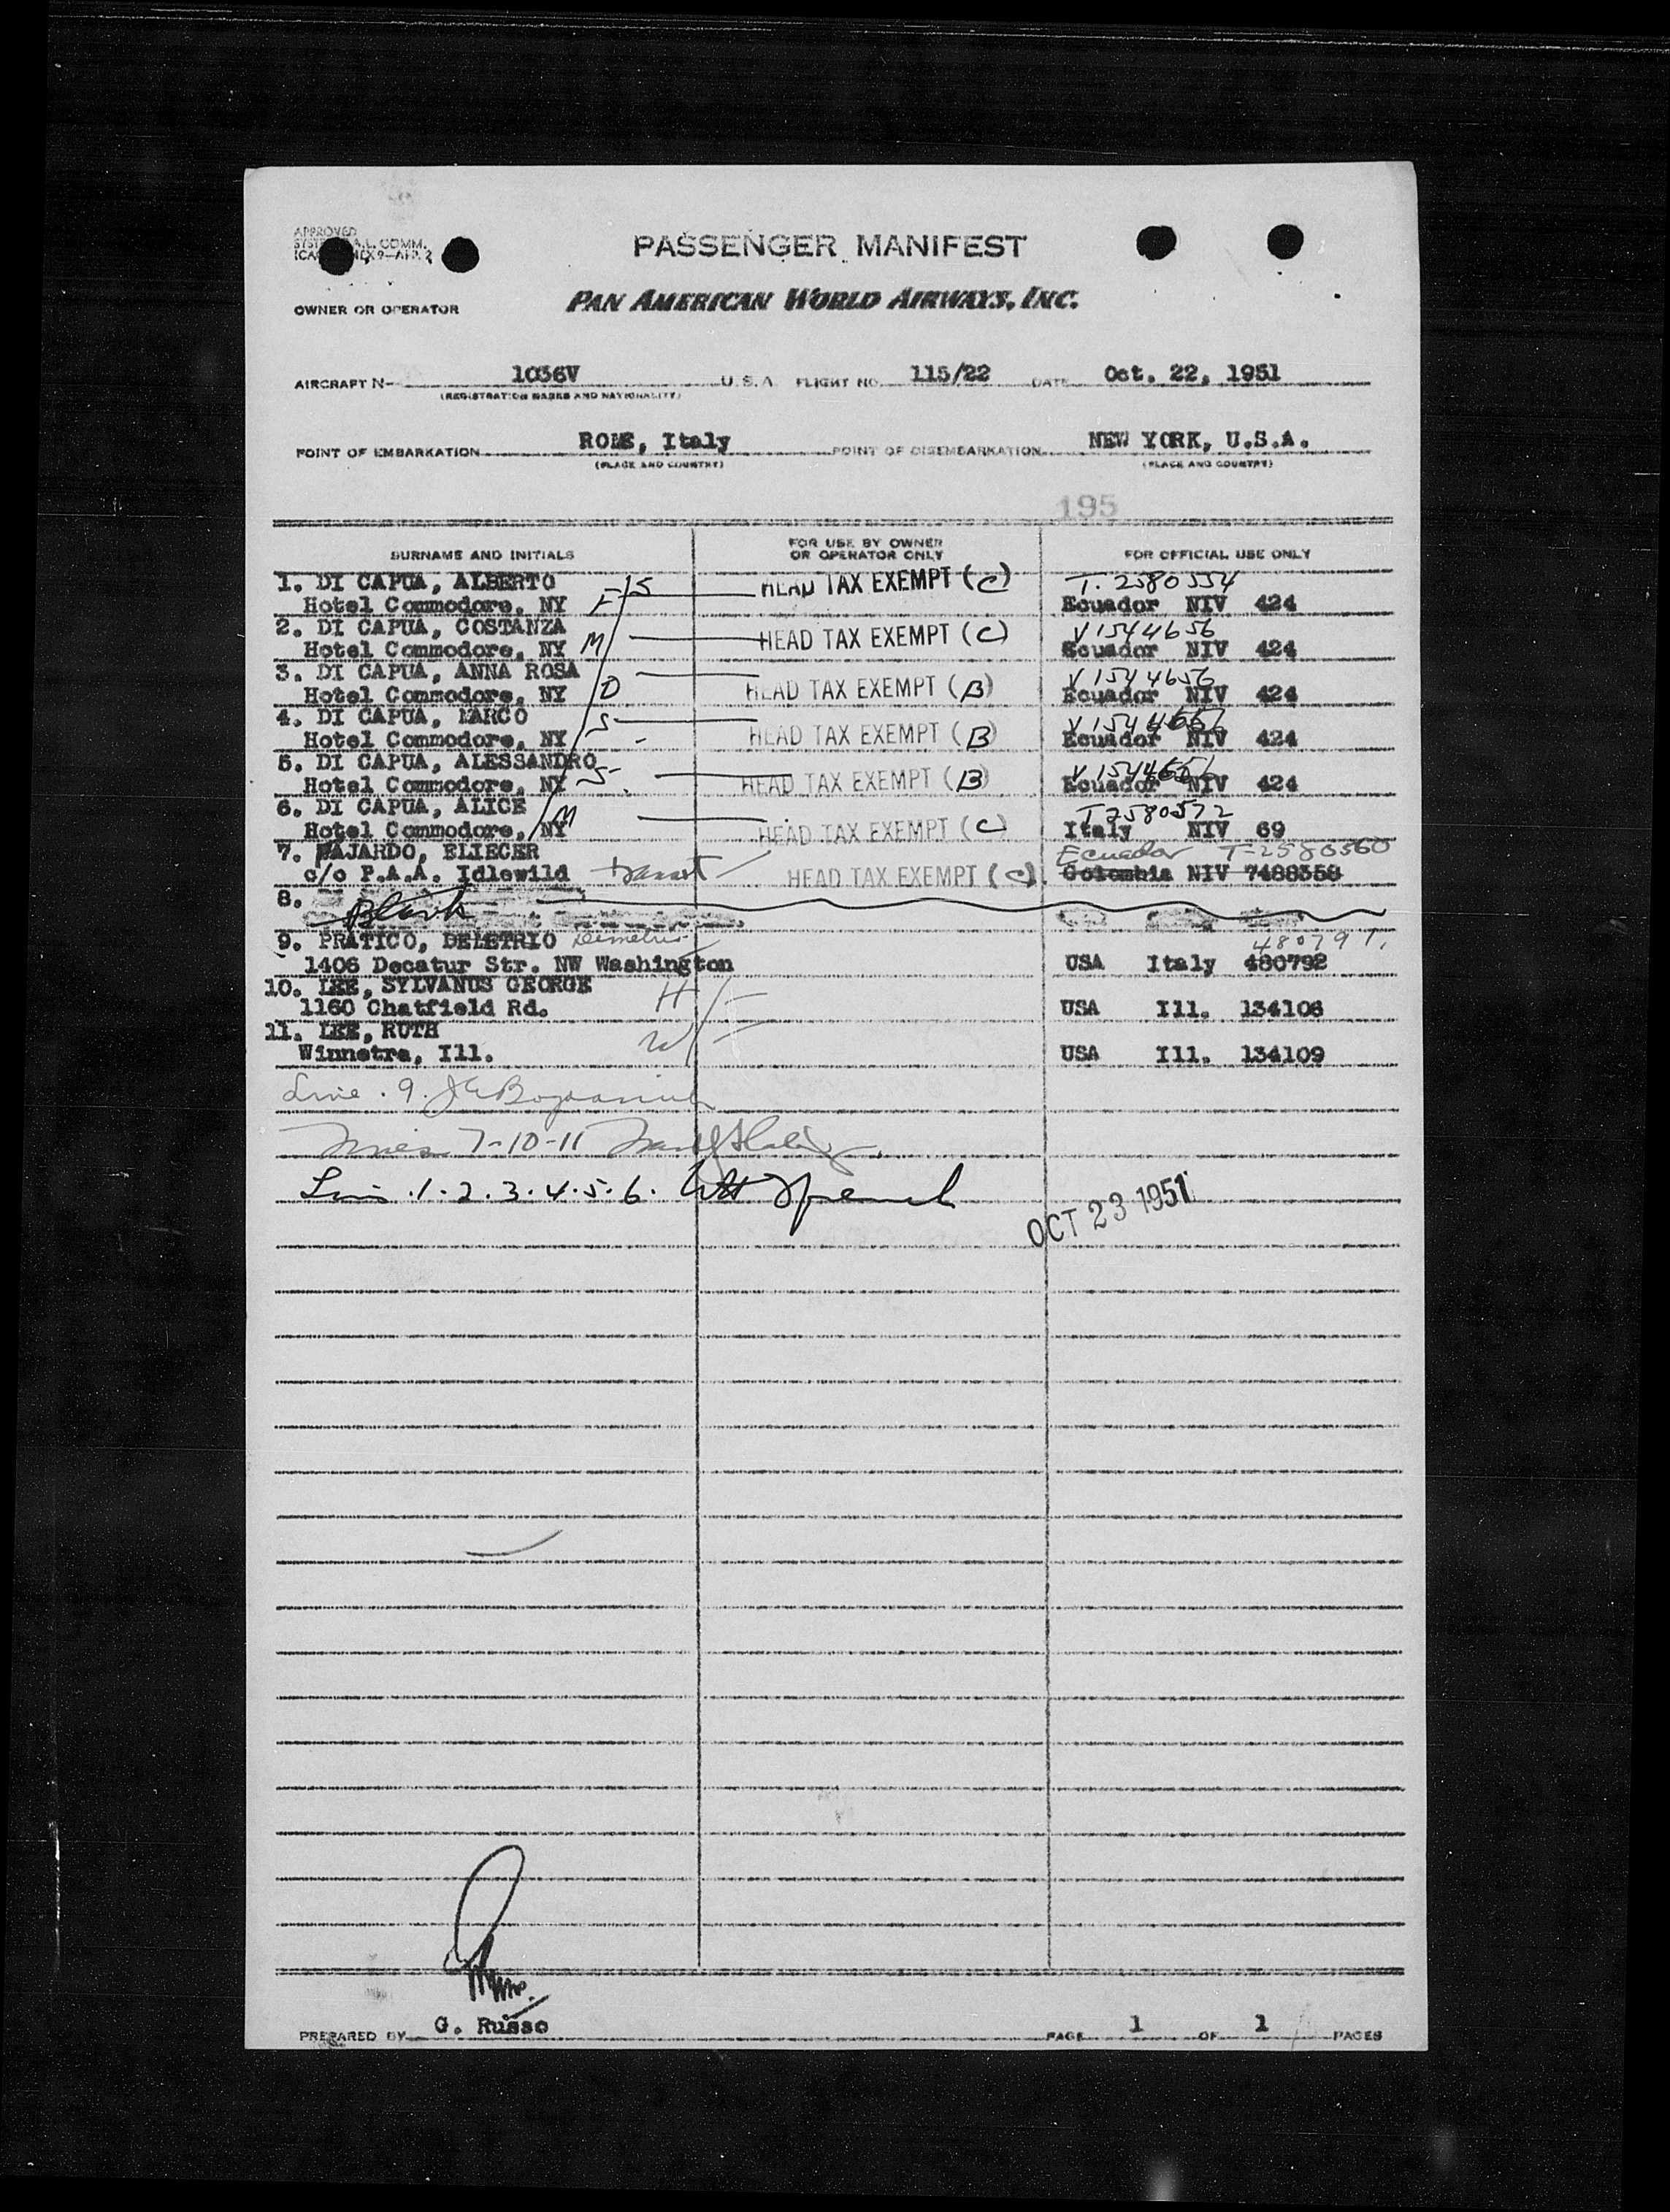 APPROVED
PASSENGER MANIFEST
OWNER OR OPERATOR
PAN AMERICAN WORLD AIRWAYS, INC.
AIRCRAFT N- 1036V U.S.A. FLIGHT NO. 115/22 DATE Oct. 22, 1951
(REGISTRATION MARKS AND NATIONALITY)
POINT OF EMBARKATION ROME, Italy POINT OF DISEMBARKATION NEW YORK, U.S.A.
(PLACE AND COUNTRY) (PLACE AND COUNTRY)
195
SURNAME AND INITIALS FOR USE BY OWNER OR OPERATOR ONLY FOR OFFICIAL USE ONLY
1. DI CAPUA, ALBERTO HEAD TAX EXEMPT (C) T. 2580554
Hotel Commodore, NY F/S Ecuador NIV 424
2. DI CAPUA, COSTANZA HEAD TAX EXEMPT (C) V1544656
Hotel Commodore, NY M Ecuador NIV 424
3. DI CAPUA, ANNA ROSA HEAD TAX EXEMPT (B) V1544656
Hotel Commodore, NY D Ecuador NIV 424
4. DI CAPUA, MARCO HEAD TAX EXEMPT (B)
Hotel Commodore, NY S Ecuador NIV 424
5. DI CAPUA, ALESSANDRO HEAD TAX EXEMPT (B)
Hotel Commodore, NY S Ecuador NIV 424
6. DI CAPUA, ALICE HEAD TAX EXEMPT (C) T2580572
Hotel Commodore, NY M Italy NIV 69
7. FAJARDO, ELIECER Ecuador T-2580560
c/o P.A.A. Idlewild transit HEAD TAX EXEMPT (C). Colombia NIV 7488358
8. Blank
9. PRATICO, DELETRIO Demetrio 480791.
1406 Decatur Str. NW Washington USA Italy 480792
10. LEE, SYLVANUS GEORGE H
1160 Chatfield Rd. USA Ill. 134108
11. LEE, RUTH W
Winnetra, Ill. USA Ill. 134109
Line. 9.
7-10-11
1. 2. 3. 4. 5. 6.
OCT 23 1951
PREPARED BY G. Russo PAGE 1 OF 1 PAGES